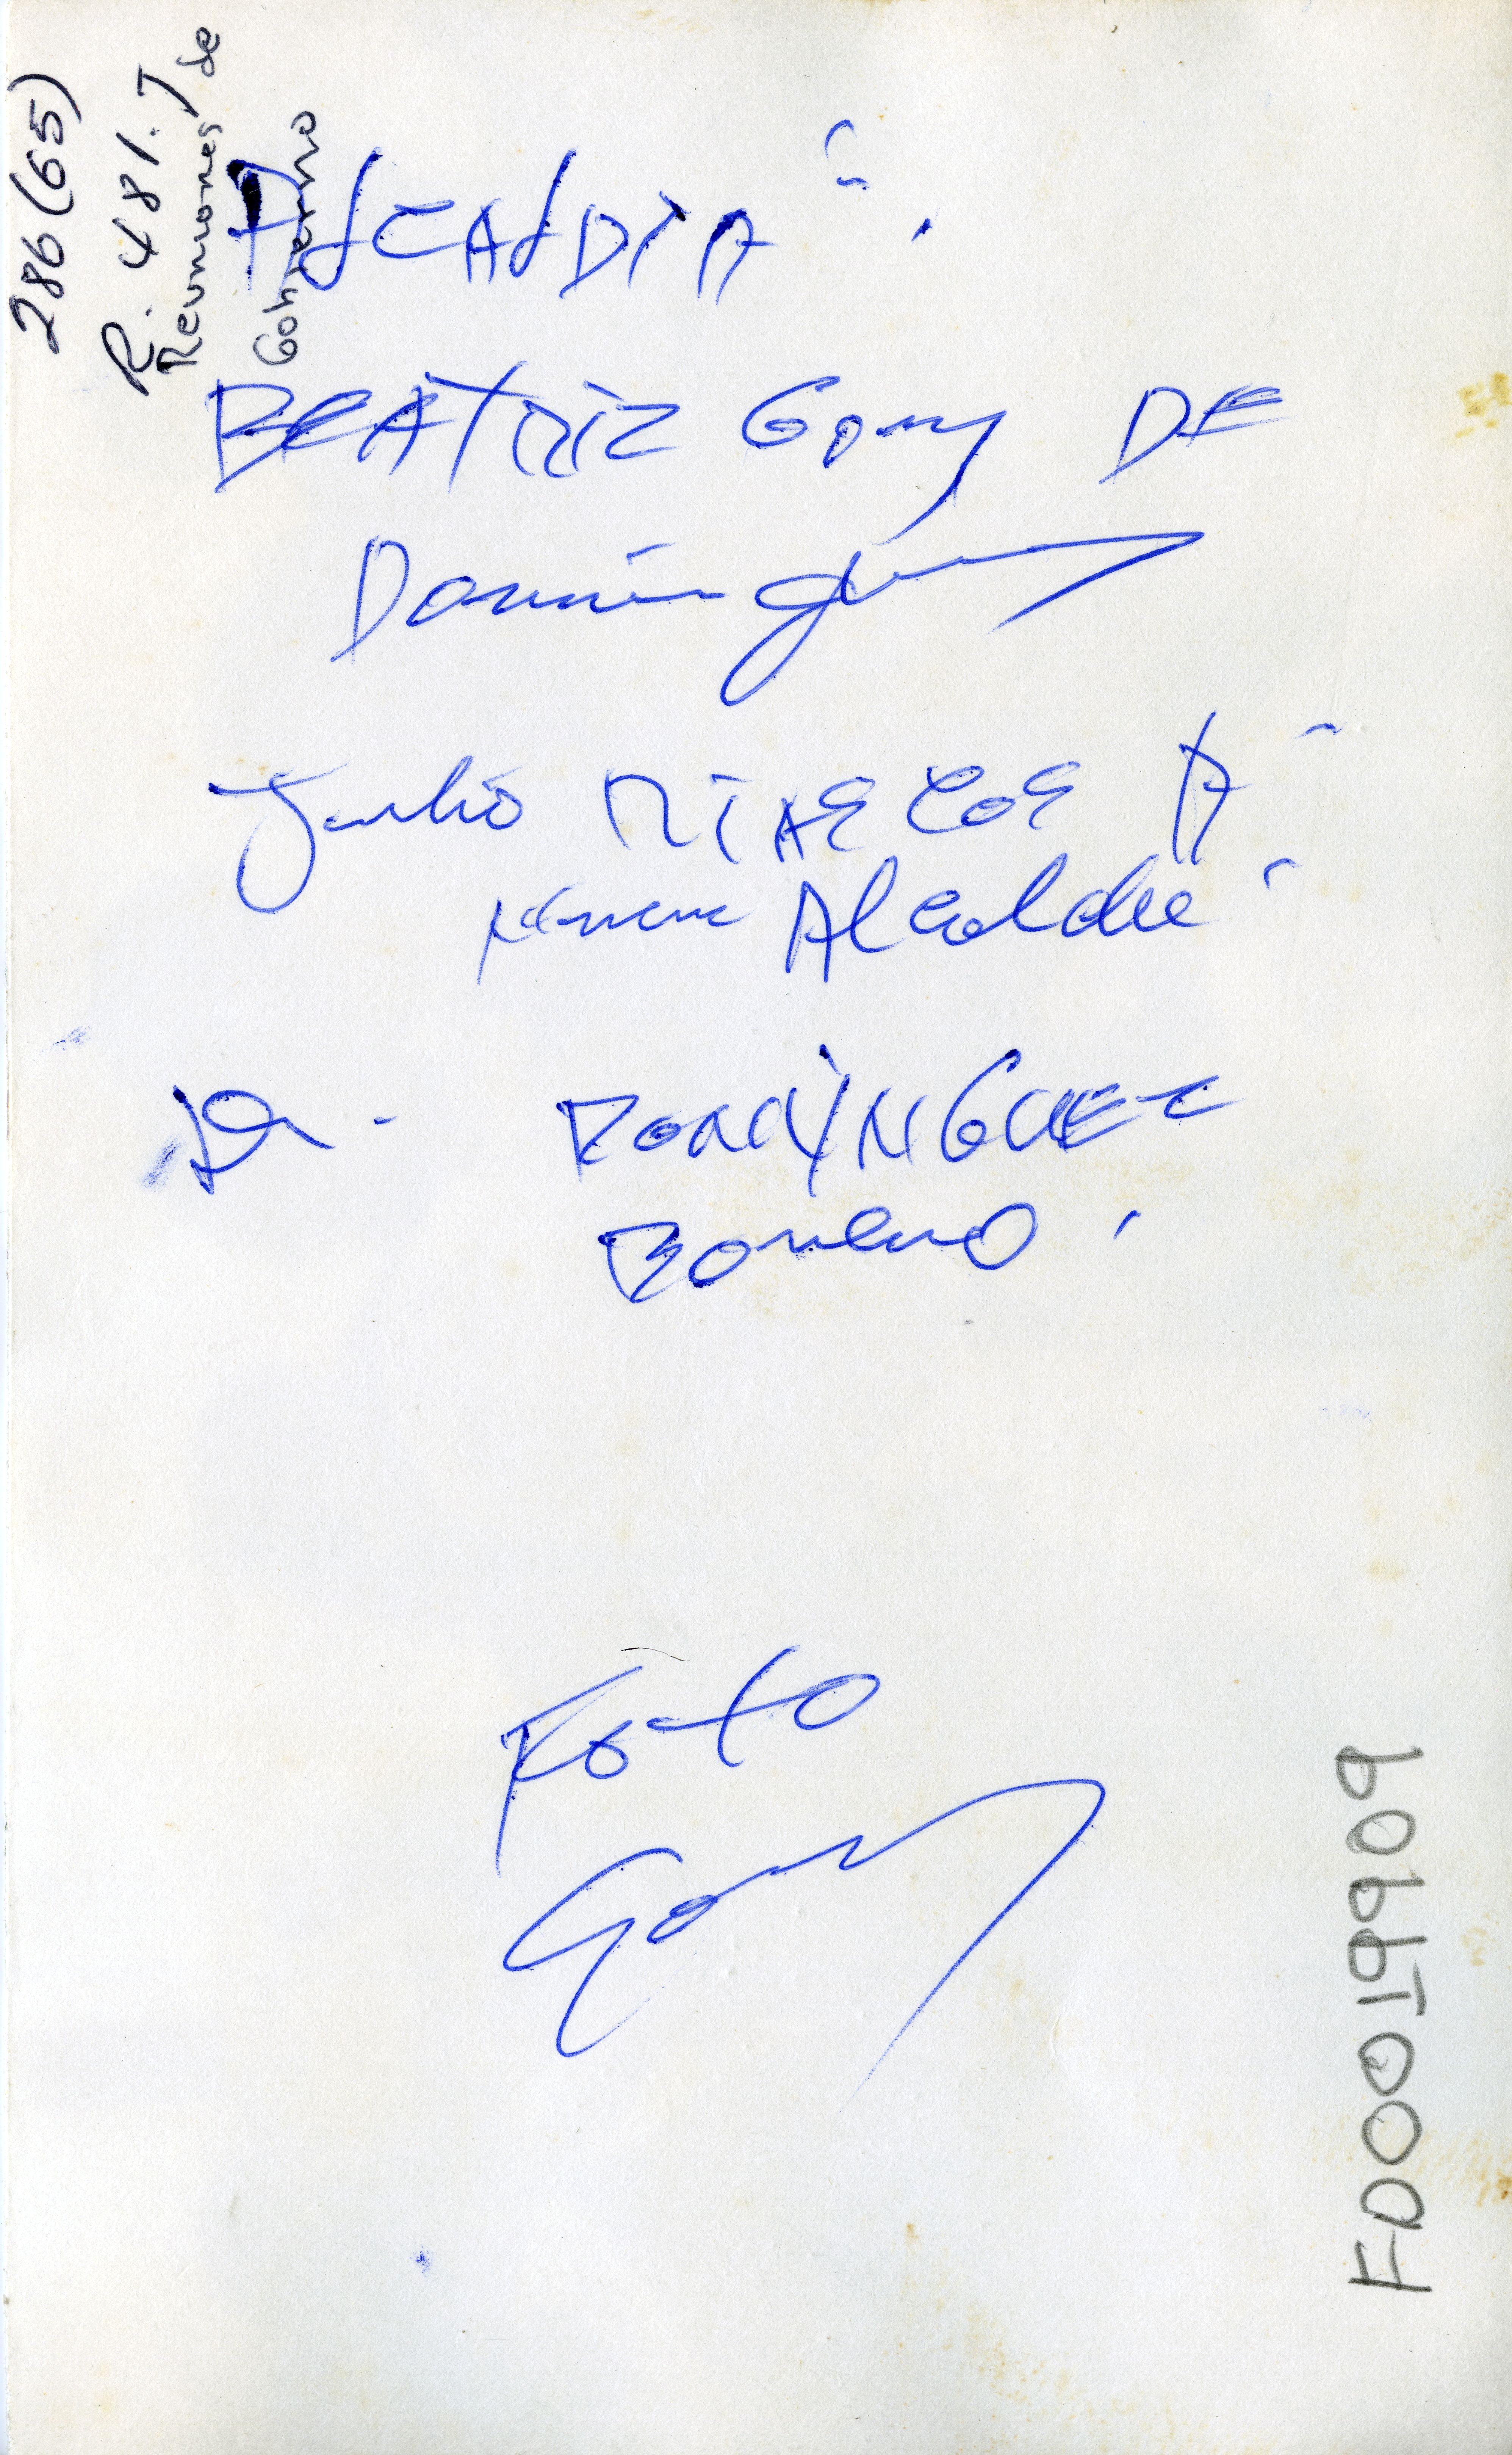 286 (65)
R. 481.7
Reuniones de
Gobierno
ALCALDIA
BEATRIZ Gomez DE
Domínguez
Julio RIASCOS A
Alcalde
Dr. DOMINGUEZ
Romero
Foto
FD0019909